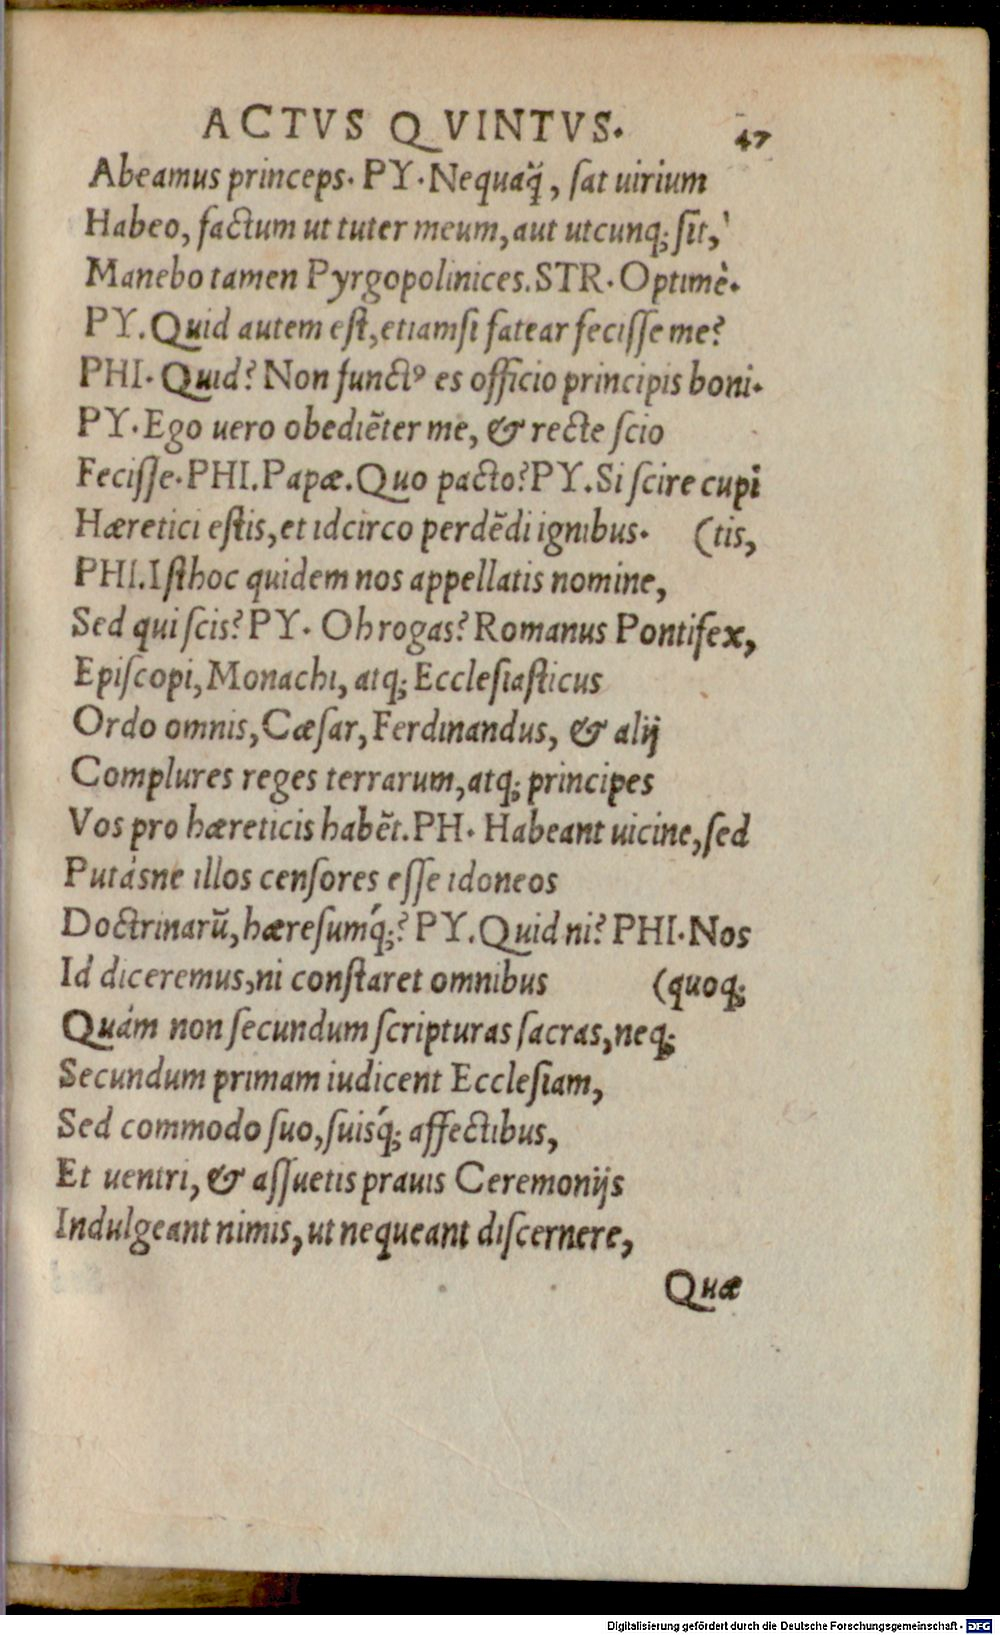 ACTVS QVINTVS. 47
Abeamus princeps. PY. Nequaq̃, ſat uirium
Habeo, factum ut tuter meum, aut utcunq; ſit,
Manebo tamen Pyrgopolinices. STR. Optimè.
PY. Quid autem eſt, etiamſi fatear feciſſe me?
PHI. Quid? Non funct⁹ es officio principis boni.
PY. Ego uero obediẽter me, & recte ſcio
Feciſſe. PHI. Papæ. Quo pacto? PY. Si ſcire cupi
Hæretici eſtis, et idcirco perdẽdi ignibus. (tis,
PHI. Iſthoc quidem nos appellatis nomine,
Sed qui ſcis? PY. Obrogas? Romanus Pontifex,
Epiſcopi, Monachi, atq; Eccleſiaſticus
Ordo omnis, Cæſar, Ferdinandus, & alij
Complures reges terrarum, atq; principes
Vos pro hæreticis habẽt. PH. Habeant uicine, ſed
Putásne illos cenſores eſſe idoneos
Doctrinarũ, hæreſumq́;? PY. Quid ni? PHI. Nos
Id diceremus, ni conſtaret omnibus (quoq;
Quám non ſecundum ſcripturas ſacras, neq;
Secundum primam iudicent Eccleſiam,
Sed commodo ſuo, ſuisq́; affectibus,
Et uentri, & aſſuetis prauis Ceremonijs
Indulgeant nimis, ut nequeant diſcernere,
Quæ
Digitalisierung gefördert durch die Deutsche Forschungsgemeinschaft - DFG